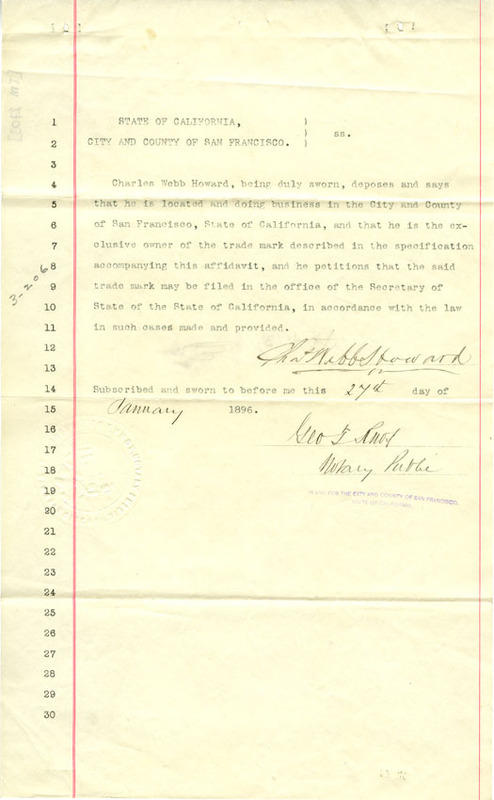 1 STATE OF CALIFORNIA, )
) ss.
2 CITY AND COUNTY OF SAN FRANCISCO. )
3
4 Charles Webb Howard, being duly sworn, deposes and says
5 that he is located and doing business in the City and County
6 of San Francisco, State of California, and that he is the ex-
7 clusive owner of the trade mark described in the specification
3-206
8 accompanying this affidavit, and he petitions that the said
9 trade mark may be filed in the office of the Secretary of
10 State of the State of California, in accordance with the law
11 in such cases made and provided.
12 Chas Webb Howard
13
14 Subscribed and sworn to before me this 27th day of
15 January 1896.
16 Geo T Knox
17 Notary Public
18
19 IN AND FOR THE CITY AND COUNTY OF SAN FRANCISCO,
STATE OF CALIFORNIA.
20
21
22
23
24
25
26
27
28
29
30